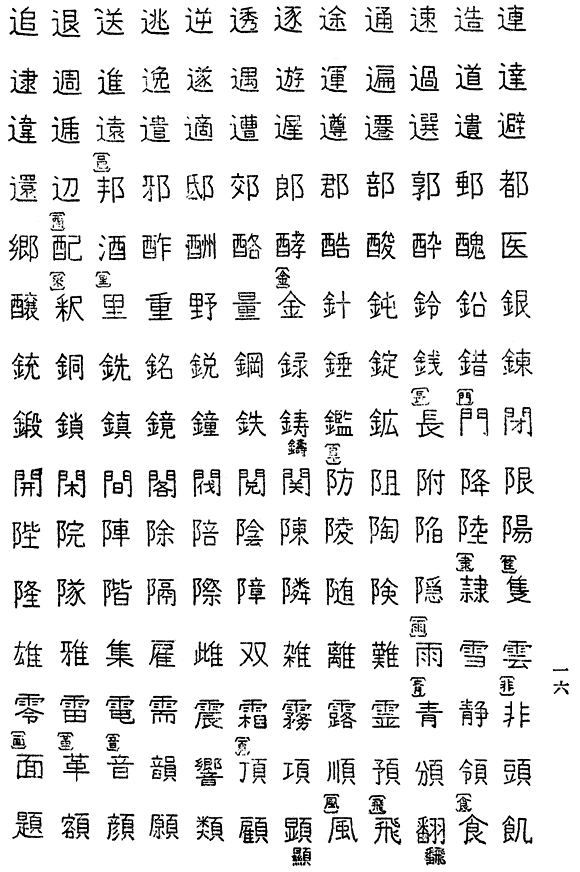 追退送逃逆透逐途通速造連
逮週進逸遂遇遊運遍過道達
違逓遠遣適遭遅遵遷選遺避
邑
還辺邦邪邸郊郎郡部郭郵都
酉
郷配酒酢酬酪酵酷酸酔醜医
釆 里 金
醸釈里重野量金針鈍鈴鉛銀
銃銅銑銘鋭鋼録錘錠銭錯錬
長 門
鍛鎖鎮鏡鐘鉄鋳鑑鉱長門閉
鑄 阜
開閑間閣閥閲関防阻附降限
陛院陣除陪陰陳陵陶陥陸陽
隶 隹
隆隊階隔際障隣随険隠隷隻
雨
雄雅集雇雌双雑離難雨雪雲
青 非
零雷電需震霜霧露霊青静非
面 革 音 頁
面革音韻響頂項順預頒領頭
風 飛 食
題額顔願類顧顕風飛翻食飢
顯 飜
一六